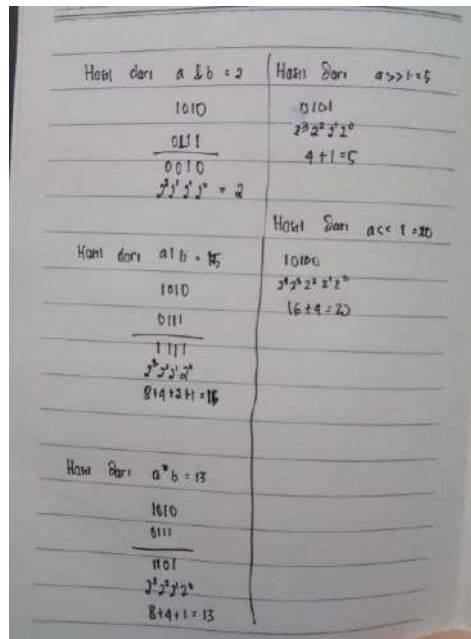 Hasil dari a & b = 2
1010
0111
0010
2³ 2² 2¹ 2⁰ = 2
Hasil dari a | b = 15
1010
0111
1111
2³ 2² 2¹ 2⁰
8+4+2+1 = 15
Hasil Dari a ^ b = 13
1010
0111
1101
2³ 2² 2¹ 2⁰
8+4+1 = 13
Hasil Dari a >> 1 = 5
0101
2³ 2² 2¹ 2⁰
4+1 = 5
Hasil Dari a << 1 = 20
10100
2⁴ 2³ 2² 2¹ 2⁰
16+4 = 20